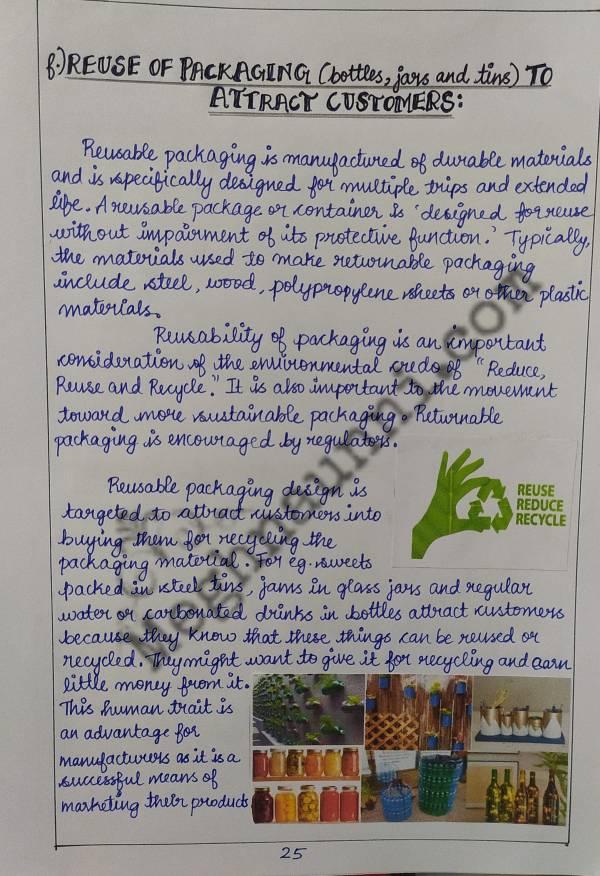 f.) REUSE OF PACKAGING (bottles, jars and tins) TO
ATTRACT CUSTOMERS:
Reusable packaging is manufactured of durable materials
and is specifically designed for multiple trips and extended
life. A reusable package or container is 'designed for reuse
without impairment of its protective function.' Typically,
the materials used to make returnable packaging
include steel, wood, polypropylene sheets or other plastic
materials.
Reusability of packaging is an important
consideration of the environmental credo of "Reduce,
Reuse and Recycle." It is also important to the movement
toward more sustainable packaging. Returnable
packaging is encouraged by regulators.
REUSE
REDUCE
RECYCLE
Reusable packaging design is
targeted to attract customers into
buying them for recycling the
packaging material. For eg. sweets
packed in steel tins, jams in glass jars and regular
water or carbonated drinks in bottles attract customers
because they know that these things can be reused or
recycled. They might want to give it for recycling and earn
little money from it.
This human trait is
an advantage for
manufacturers as it is a
successful means of
marketing their products
25